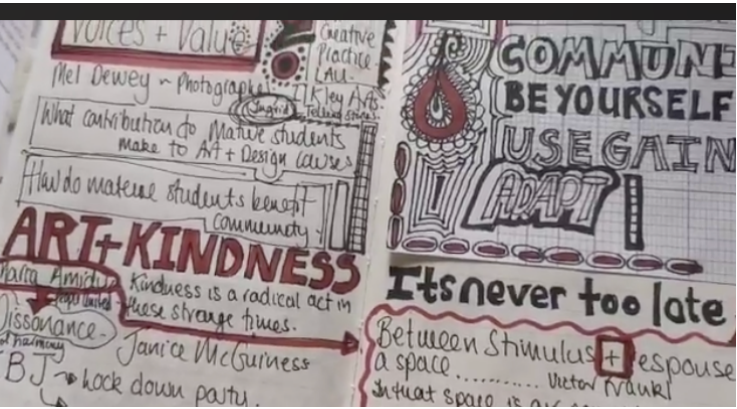 Voices + Value
Creative
Practice
LAU.
Mel Dewey ~ Photographer
Ingrid
Kley Arts.
Telling stories
What contribution do Mature students
make to Art + Design courses
How do mature students benefit
community.
ART + KINDNESS
Amidu
Kindness is a radical act in
these strange times.
Dissonance -
Janice McGuiness
BJ lock down party.
COMMUNI
BE YOURSELF
USE GAIN
ADAPT
Its never too late
Between Stimulus + espouse
a space .......... Victor Frankl
In that space is